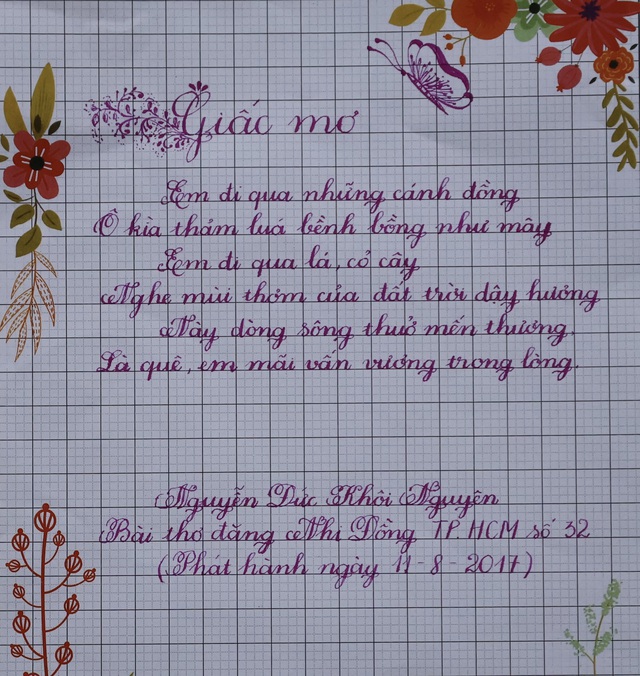 Giấc mơ
Em đi qua những cánh đồng
Ồ kìa thảm luá bềnh bồng như mây
Em đi qua lá, cỏ cây
Nghe mùi thơm của đất trời dậy hương
Này dòng sông thuở mến thương.
Là quê, em mãi vấn vương trong lòng.
Nguyễn Đức Khôi Nguyên
Bài thơ đăng Nhi Đồng TP. HCM số 32
(Phát hành ngày 11 - 8 - 2017)